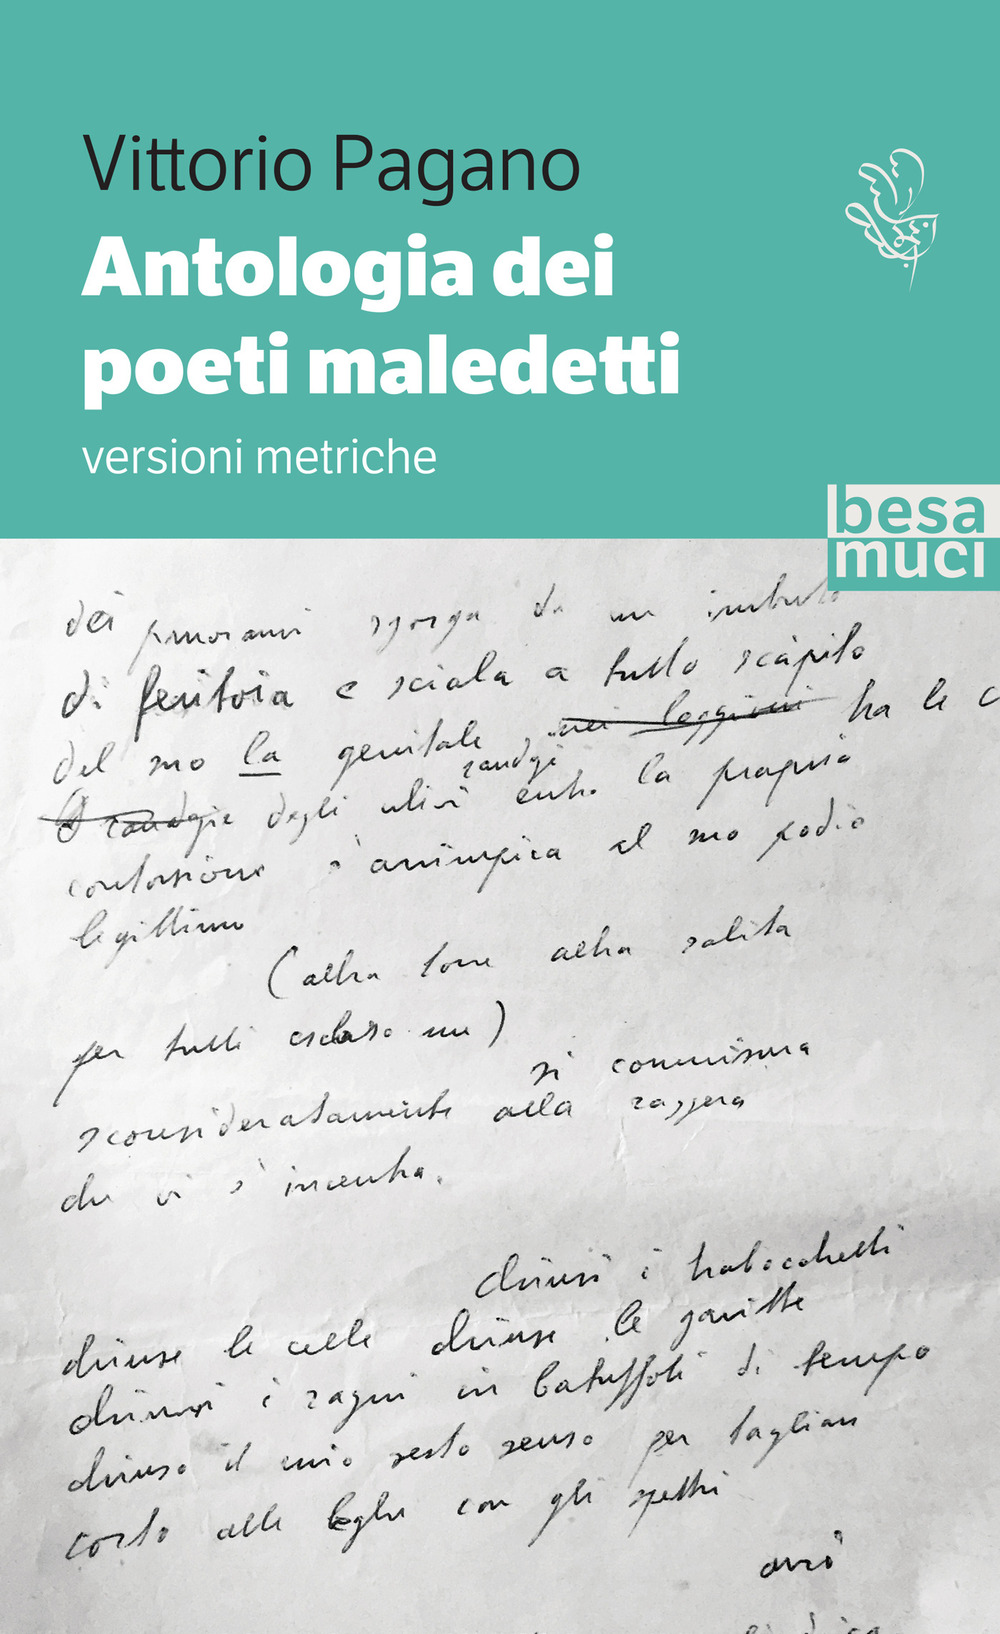 Vittorio Pagano
Antologia dei
poeti maledetti
versioni metriche
besa
muci
dei panorami sgorga da un imbuto
di feritoia e sciala a tutto scàpito
del suo la genitale, nei loggioni ha le c
randagi
O randagie degli ulivi entro la propria
contorsione s'arrimpica al suo podio
legittimo
(altra torre altra salita
per tutti escluso me)
si commisura
sconsideratamente alla raggera
che vi s'incentra.
chiusi i trabocchetti
chiuse le celle chiuse le garitte
chiusi i ragni in batuffoli di tempo
chiuso il mio sesto senso per tagliar
corto alle beghe con gli spettri